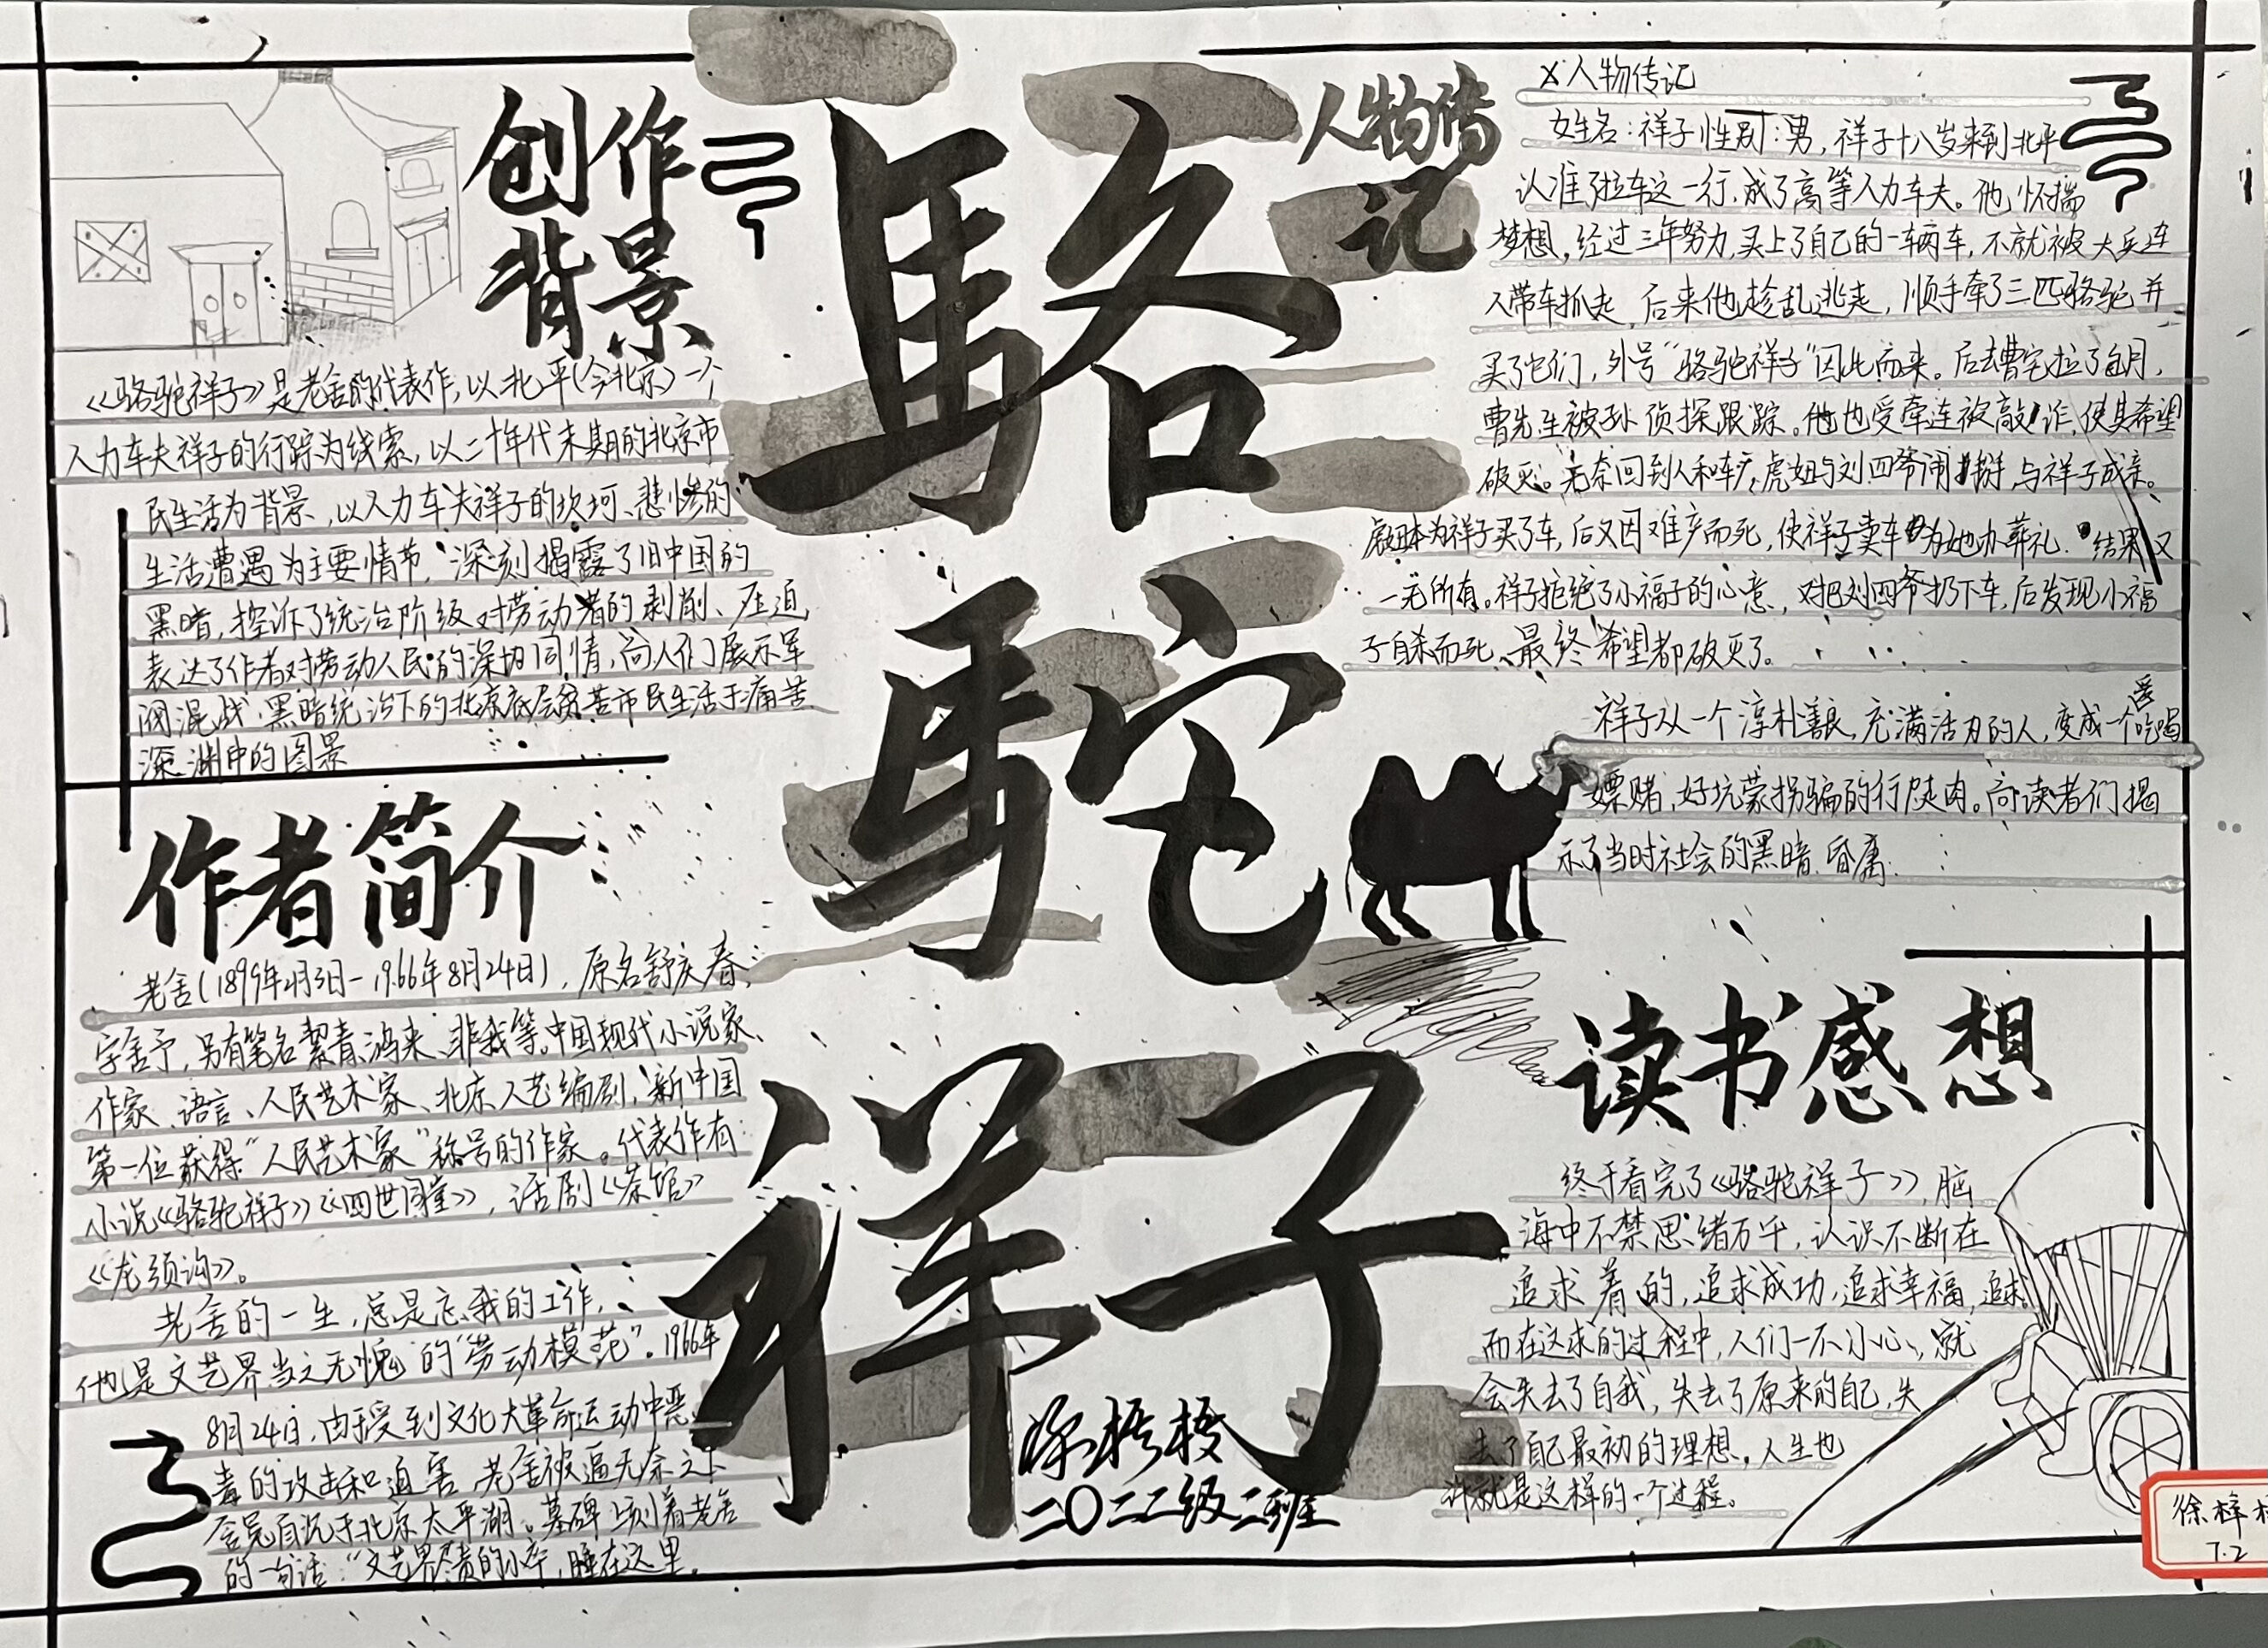 创作
背景
《骆驼祥子》是老舍的代表作,以北平(今北京)一个
人力车夫祥子的行踪为线索,以二十年代末期的北京市
民生活为背景,以人力车夫祥子的坎坷、悲惨的
生活遭遇为主要情节,深刻揭露了旧中国的
黑暗,控诉了统治阶级对劳动者的剥削、压迫
表达了作者对劳动人民的深切同情,向人们展示军
阀混战、黑暗统治下的北京底层贫苦市民生活于痛苦
深渊中的图景
作者简介
老舍(1899年2月3日-1966年8月24日),原名舒庆春,
字舍予,另有笔名絜青、鸿来、非我等。中国现代小说家、
作家、语言、人民艺术家、北京人艺编剧,新中国
第一位获得“人民艺术家”称号的作家。代表作有:
小说《骆驼祥子》《四世同堂》,话剧《茶馆》
《龙须沟》。
老舍的一生,总是忘我的工作,
他是文艺界当之无愧的“劳动模范”。1966年
8月24日,由于受到文化大革命运动中恶
毒的攻击和迫害,老舍被逼无奈之下
含冤自沉于北京太平湖。墓碑上刻着老舍
的一句话:“文艺界尽责的小卒,睡在这里。
駱
駝
祥子
二〇二二级二班
人物传
记
人物传记
姓名:祥子 性别:男,祥子十八岁来到北平
认准了拉车这一行,成了高等人力车夫。他怀揣
梦想,经过三年努力,买上了自己的一辆车,不就被大兵连
人带车抓走,后来他趁乱逃走,顺手牵了三匹骆驼并
买了它们,外号“骆驼祥子”因此而来。后去曹宅拉了包月,
曹先生被孙侦探跟踪。他也受牵连被敲诈,使其希望
破灭。无奈回到人和车厂,虎妞与刘四爷闹掰,与祥子成亲。
虎妞本为祥子买了车,后又因难产而死,使祥子卖车为她办葬礼.结果又
一无所有。祥子拒绝了小福子的心意,对把刘四爷扔下车,后发现小福
子自杀而死、最终希望都破灭了。
祥子从一个淳朴善良,充满活力的人,变成一个爱吃喝
嫖赌,好坑蒙拐骗的行尸走肉。向读者们揭
示了当时社会的黑暗、昏庸.
读书感想
终于看完了《骆驼祥子》,脑
海中不禁思绪万千,认识不断在
追求着的,追求成功,追求幸福,追求
而在这求的过程中,人们一不小心,就
会失去了自我,失去了原来的自己,失
去了自己最初的理想。人生也
许就是这样的一个过程。
徐梓
7.2